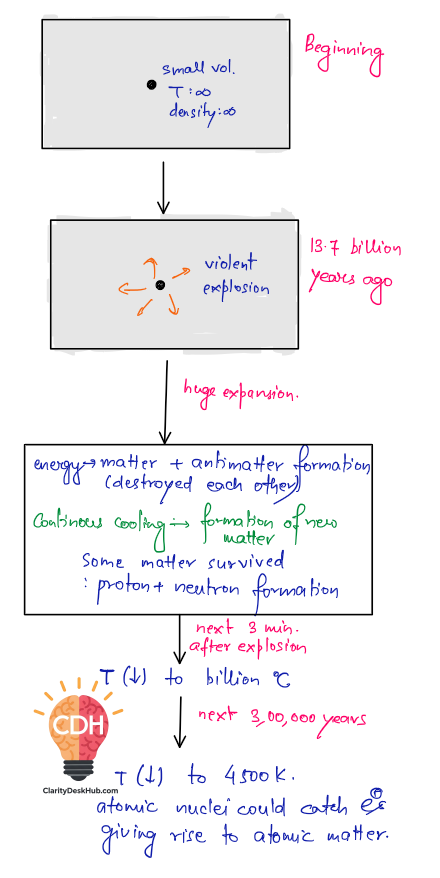 Beginning
small vol.
T:∞
density:∞
13.7 billion
years ago
violent
explosion
huge expansion.
energy→matter + antimatter formation
(destroyed each other)
Continous cooling→ formation of new
matter
Some matter survived
: proton+ neutron formation
next 3 min.
after explosion
T(↓) to billion °C
next 3,00,000 years
CDH
ClarityDeskHub.com
T(↓) to 4500K.
atomic nuclei could catch
giving rise to atomic matter.